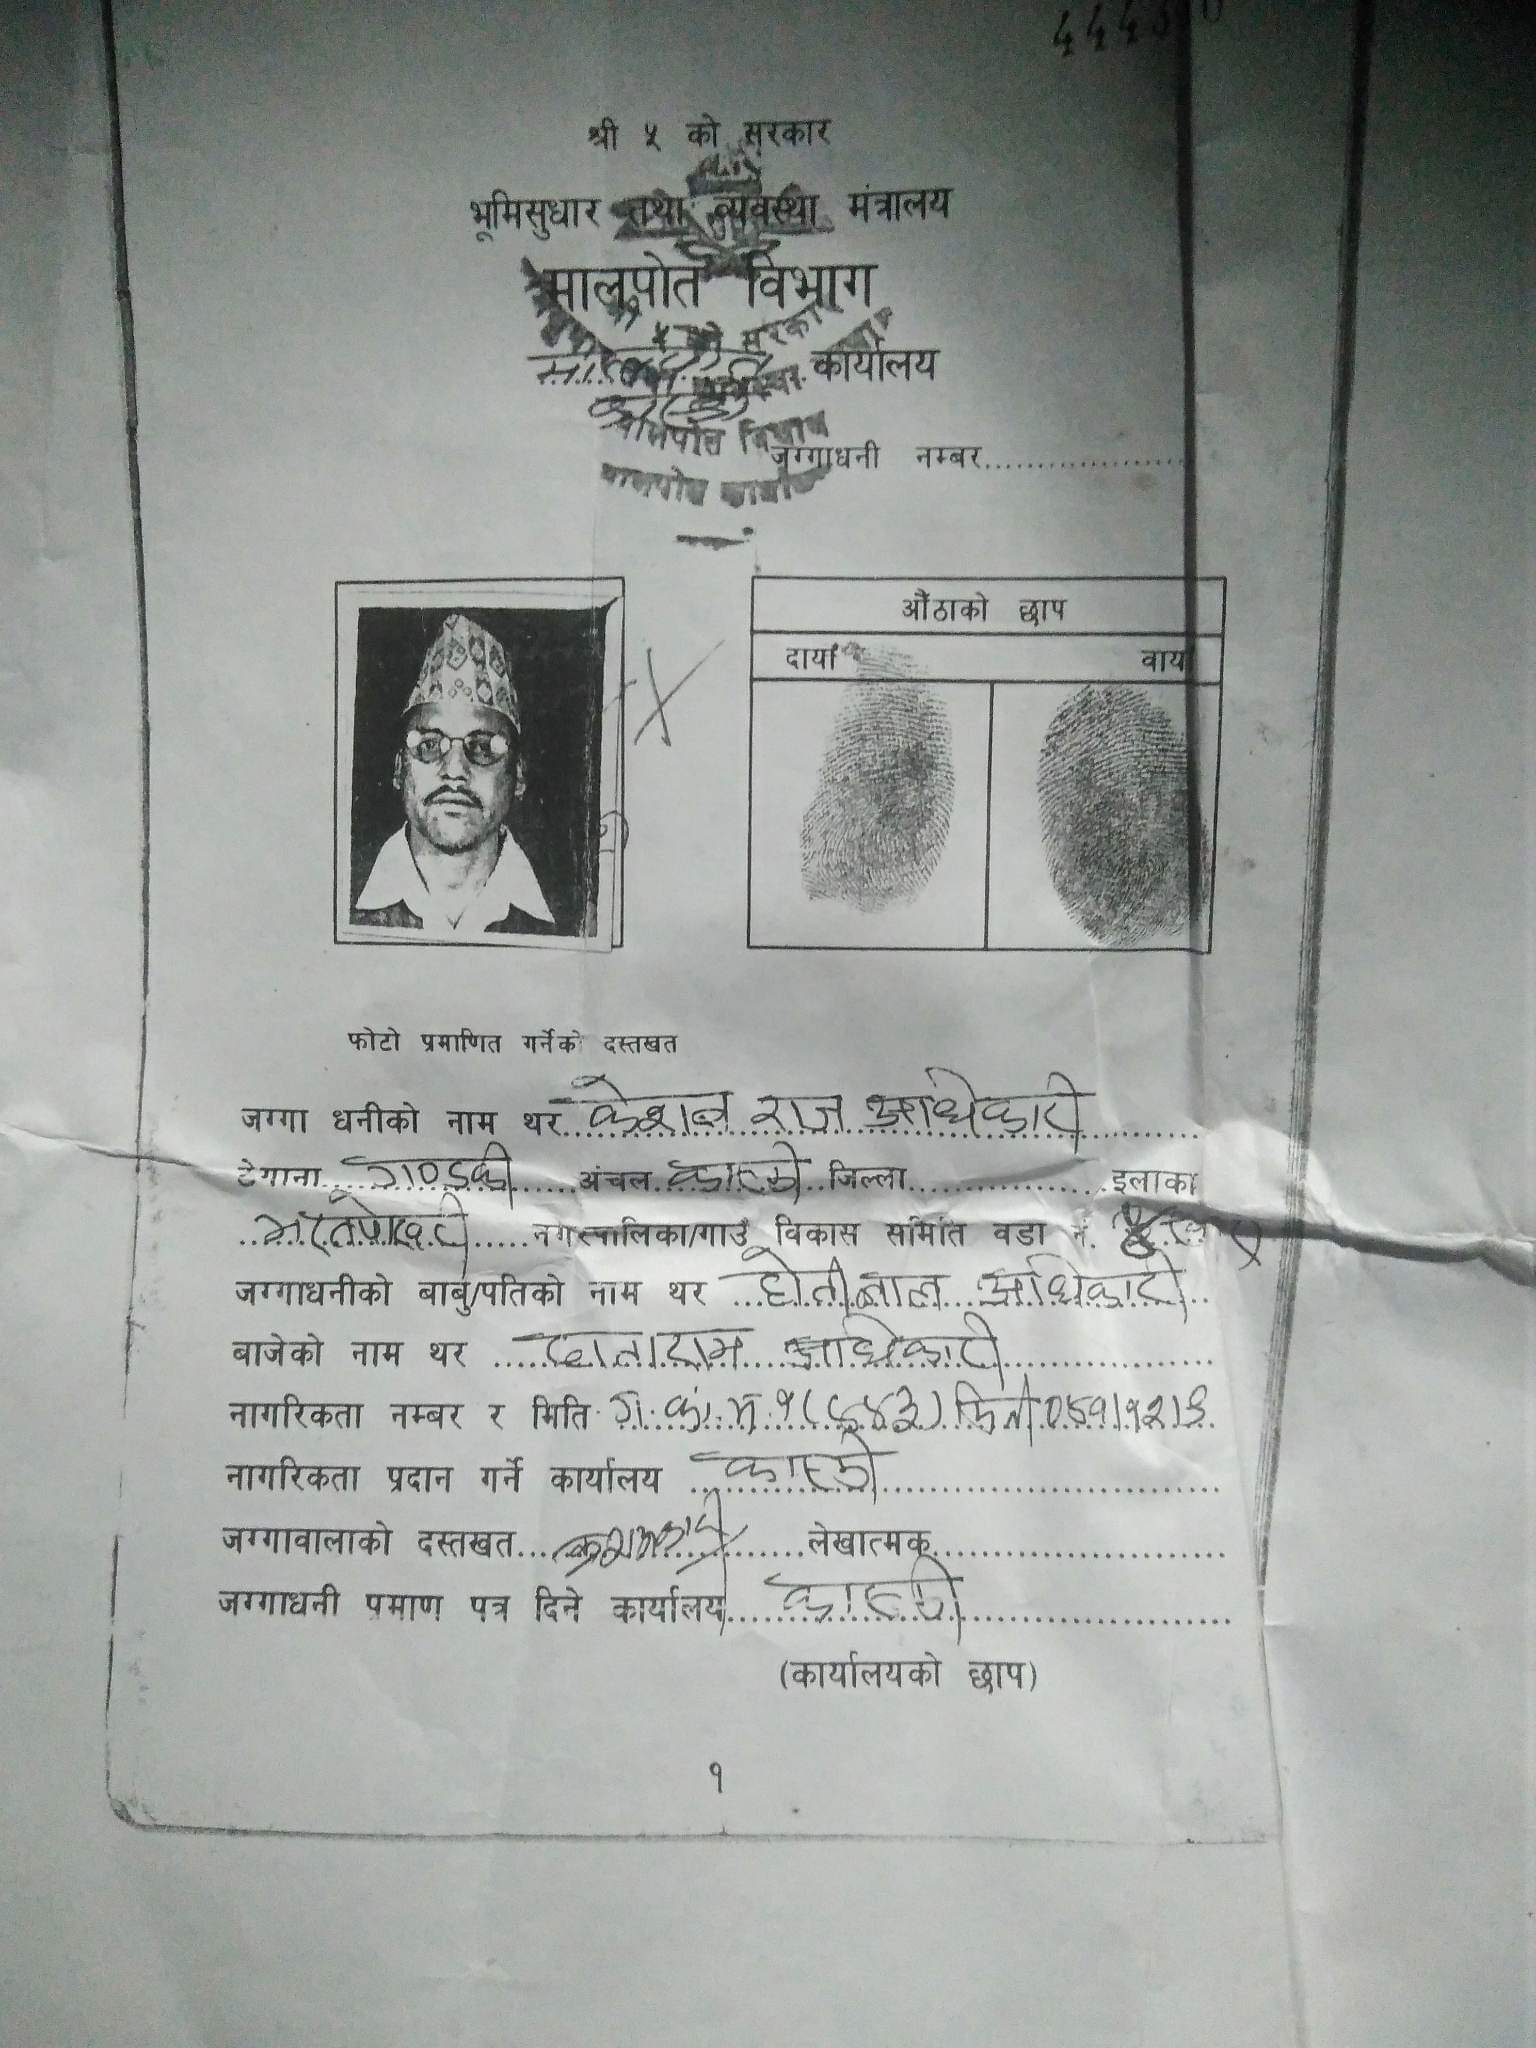 श्री ५ को सरकार
भूमिसुधार तथा व्यवस्था मंत्रालय
मालपोत विभाग
कार्यालय
मालपोत विभाग
जग्गाधनी नम्बर....................
मालपोत कार्यालय
औंठाको छाप
दायाँ वायाँ
फोटो प्रमाणित गर्नेको दस्तखत
जग्गा धनीको नाम थर केशव राज अधिकारी
ठेगाना गण्डकी अंचल कास्की जिल्ला .................. इलाका
भरतपोखरी नगरपालिका/गाउँ विकास समिति वडा नं.
जग्गाधनीको बाबु/पतिको नाम थर होतीलाल अधिकारी
बाजेको नाम थर अधिकारी
नागरिकता नम्बर र मिति
नागरिकता प्रदान गर्ने कार्यालय कास्की
जग्गावालाको दस्तखत लेखात्मक
जग्गाधनी प्रमाण पत्र दिने कार्यालय कास्की
(कार्यालयको छाप)
१